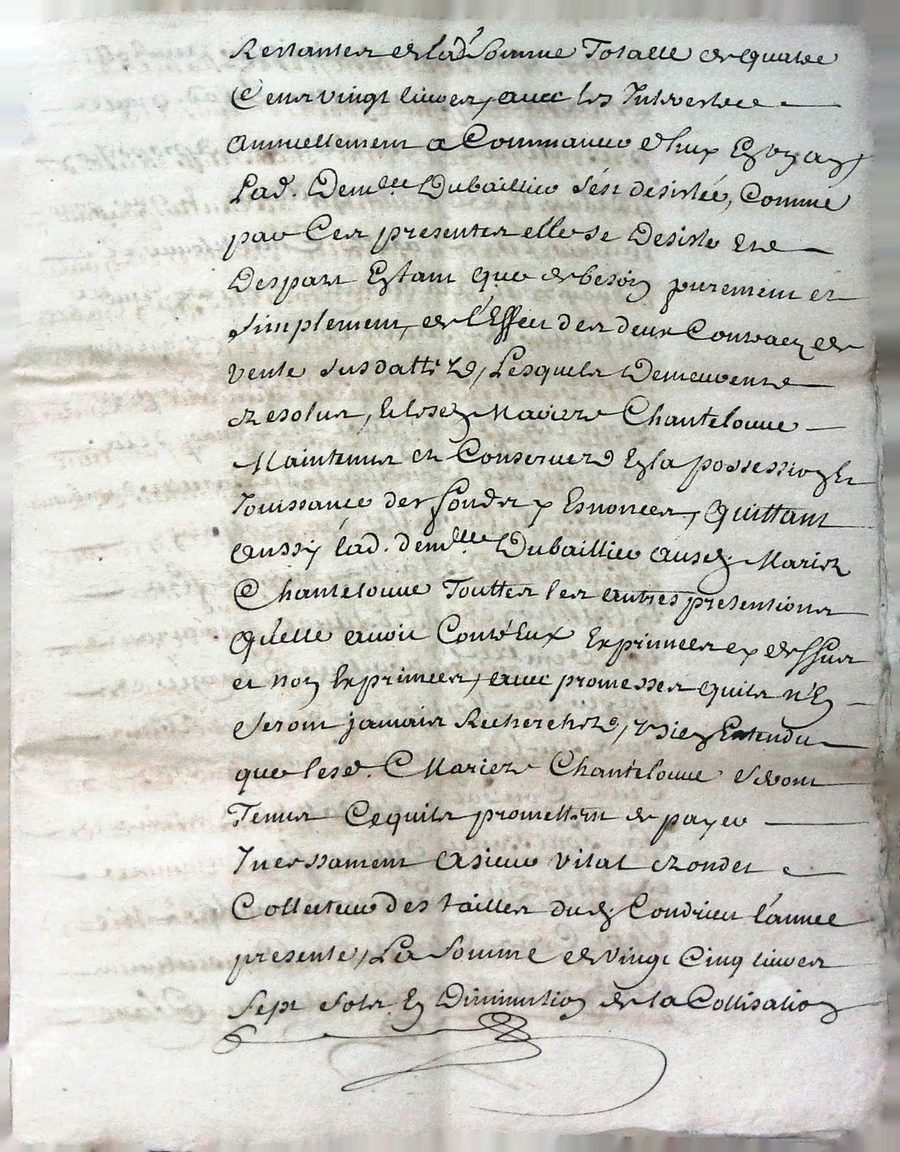 Restantes de lad. somme Totalle de quatre
Cent vingt livres, avec les Interests
annuellement a Commancer
Lad. Demlle Dubaillier s'est desistée, Comme
par Ces presentes elle se Desiste et
Despart Estant que de besoin purement et
simplement, de l'Effect des deux Contracts de
vente susdattéz, Lesquels Demeurent
Resolus, et lesd. Mariez Chantelouve
Maintenus et Conserves En la possession et
Jouissance des fonds y Enonces, quittant
aussy lad. demlle Dubaillier ausd. Mariez
Chantelouve Touttes les autres pretentions
Quelle avoit Contr'Eux Exprimées cy dessus
et non Exprimées, avec promesses quils n'En
seront jamais Recherches, Entendu
que lesd. Mariez Chantelouve seront
Tenus Ce quils promettent de payer
Incessament a sieur vital Rondet
Collecteur des tailles dud. Condrieu l'année
presente, La somme de vingt Cinq livres
sept sols En Diminution de la Cottisation